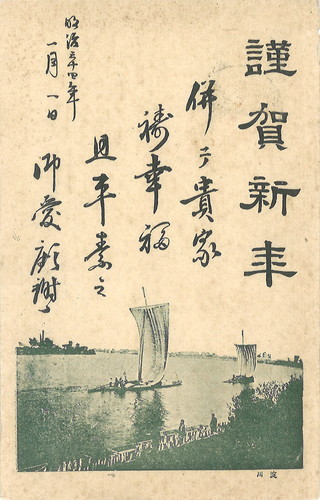 謹賀新年
併テ貴家
祷幸福
且平素之
御愛顧謝ス
明治三十四年
一月一日
淀川